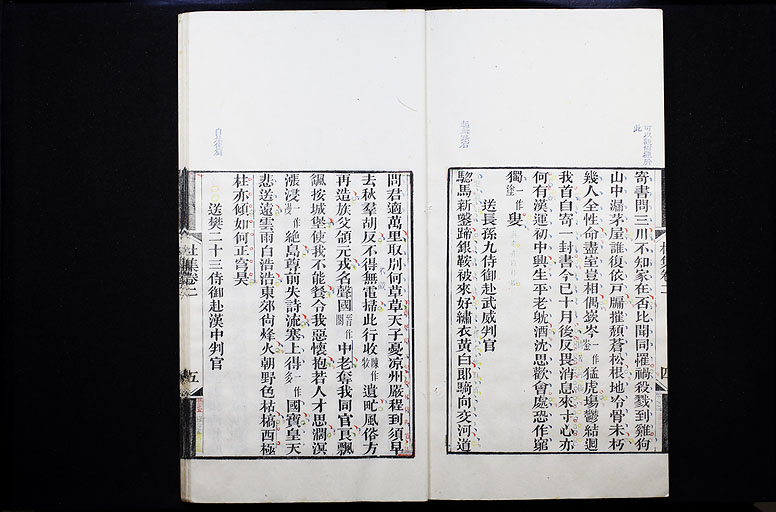 寄書問三川不知家在否比聞同罹禍殺戮到雞狗
山中漏茅屋誰復依戶牖摧頹蒼松根地冷骨未朽
幾人全性命盡室豈相偶嶔岑一作猛虎場鬱結迴
我首自寄一封書今已十月後反畏消息來寸心亦
何有漢運初中興生平老耽酒沈思歡會處恐作窮
獨一作塗叟
送長孫九侍御赴武威判官
驄馬新鑿蹄銀鞍被來好繡衣黃白郎騎向交河道
杜集卷二
四
問君適萬里取別何草草天子憂涼州嚴程到須早
去秋羣胡反不得無電掃此行收一作牧遺甿風俗方
再造族父領元戎名聲國一作閣中老奪我同官良飄
颻按城堡使我不能餐令我惡懷抱若人才思闊溟
漲浸一作絕島尊前失詩流塞上得一作多國寶皇天
悲送遠雲雨白浩浩東郊尚烽火朝野色枯槁西極
柱亦傾如何正穹昊
送樊二十三侍御赴漢中判官
杜集卷二
五